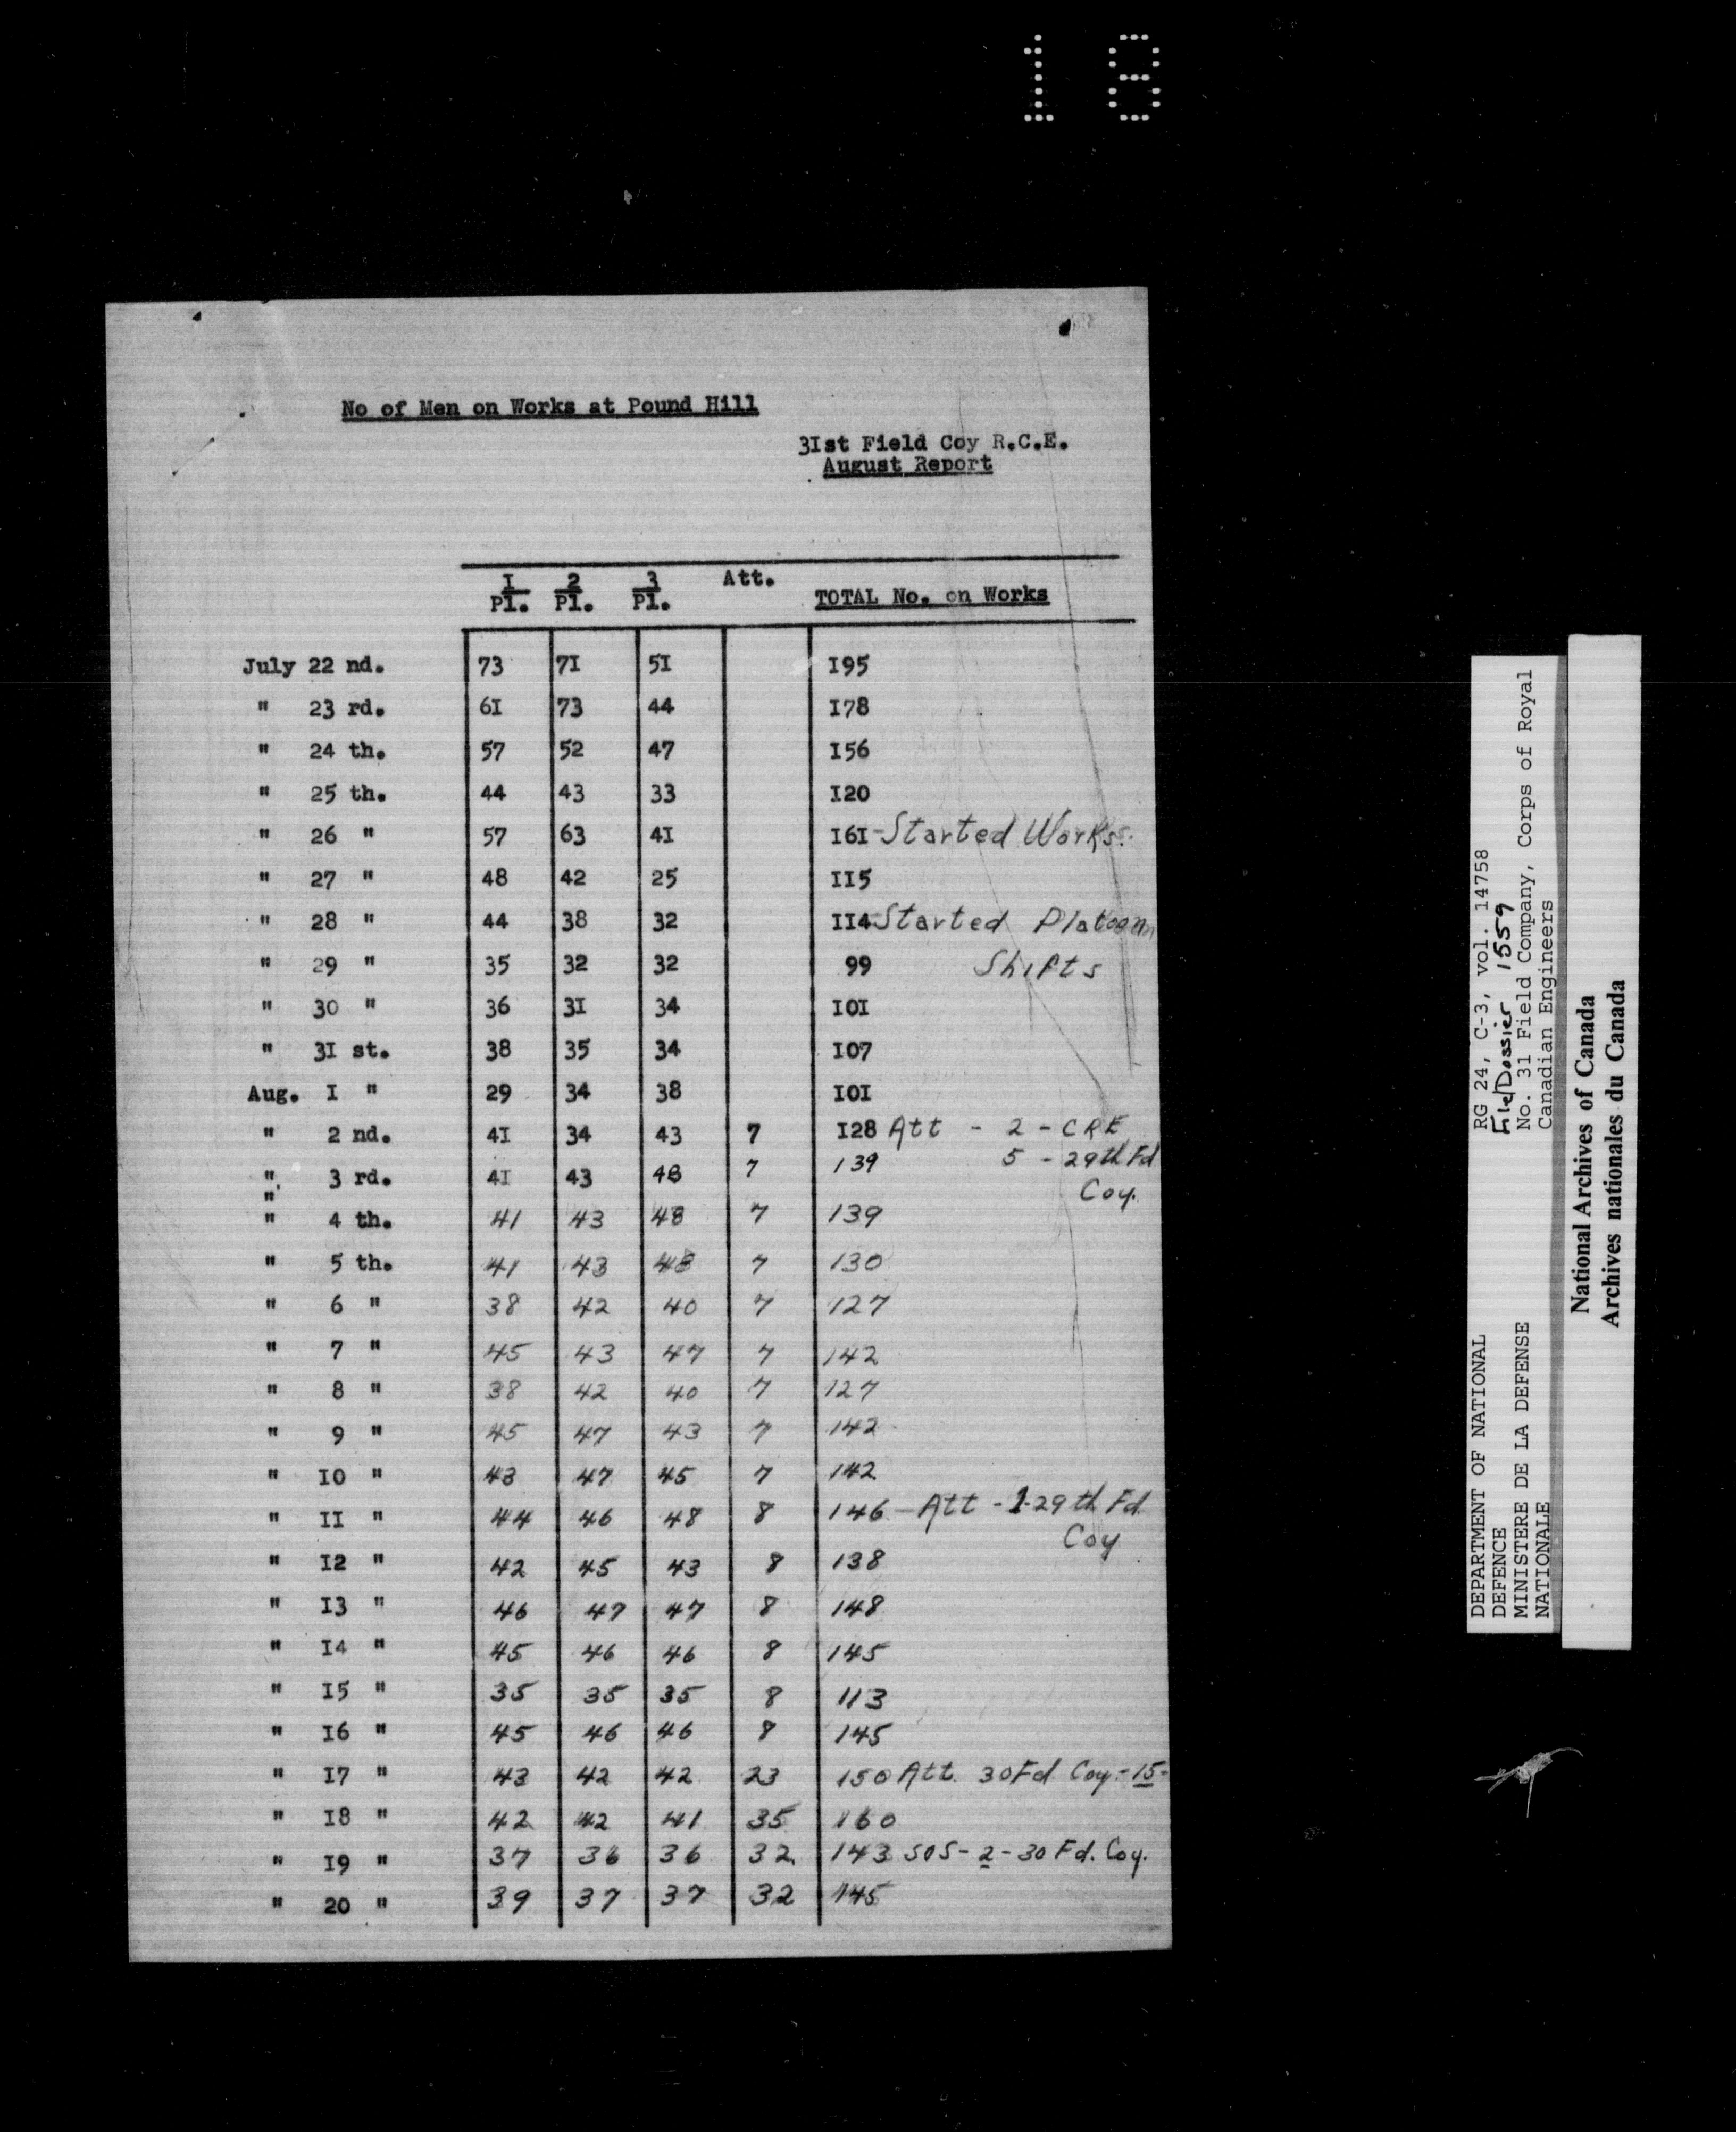 18
No of Men on Works at Pound Hill
3Ist Field Coy R.C.E.
August Report
I Pl. 2 Pl. 3 Pl. Att. TOTAL No. on Works
July 22 nd. 73 7I 5I I95
" 23 rd. 6I 73 44 I78
" 24 th. 57 52 47 I56
" 25 th. 44 43 33 I20
" 26 " 57 63 4I I6I - Started Works.
" 27 " 48 42 25 II5
" 28 " 44 38 32 II4 - Started Platoon
" 29 " 35 32 32 99 Shifts
" 30 " 36 3I 34 IOI
" 3I st. 38 35 34 I07
Aug. I " 29 34 38 IOI
" 2 nd. 4I 34 43 7 I28 Att - 2 - CRE
" 3 rd. 4I 43 48 7 139 5 - 29th Fd
" Coy.
" 4 th. 41 43 48 7 139
" 5 th. 41 43 48 7 130
" 6 " 38 42 40 7 127
" 7 " 45 43 47 7 142
" 8 " 38 42 40 7 127
" 9 " 45 47 43 7 142
" IO " 43 47 45 7 142
" II " 44 46 48 8 146 - Att - 1-29th Fd
Coy
" I2 " 42 45 43 8 138
" I3 " 46 47 47 8 148
" I4 " 45 46 46 8 145
" I5 " 35 35 35 8 113
" I6 " 45 46 46 8 145
" I7 " 43 42 42 23 150 Att. 30 Fd Coy - 15 -
" I8 " 42 42 41 35 160
" I9 " 37 36 36 32 143 SOS - 2 - 30 Fd. Coy.
" 20 " 39 37 37 32 145
DEPARTMENT OF NATIONAL DEFENCE
MINISTERE DE LA DEFENSE NATIONALE
RG 24, C-3, vol. 14758
File/Dossier 1559
No. 31 Field Company, Corps of Royal
Canadian Engineers
National Archives of Canada
Archives nationales du Canada